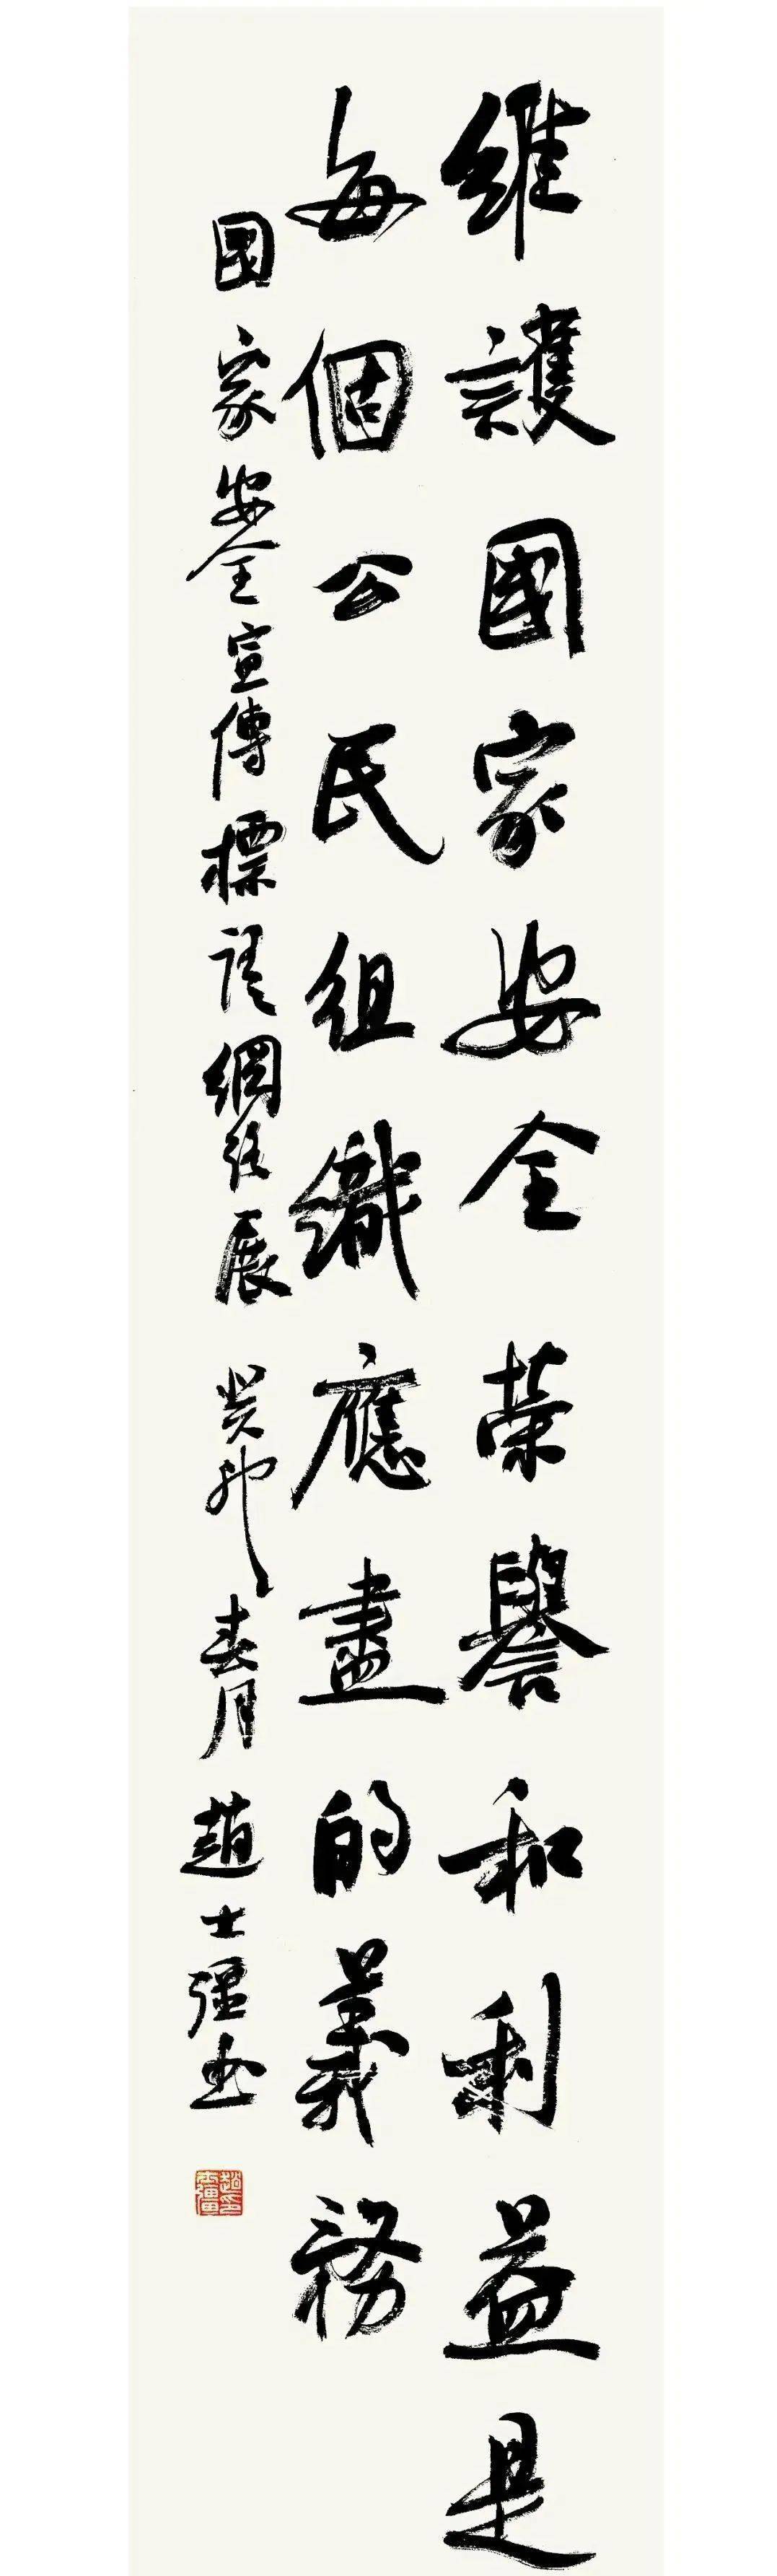 維護國家安全榮譽和利益是
每個公民組織應盡的義務
國家安全宣傳標語網絡展 癸卯春月 趙士彊书
趙士彊印